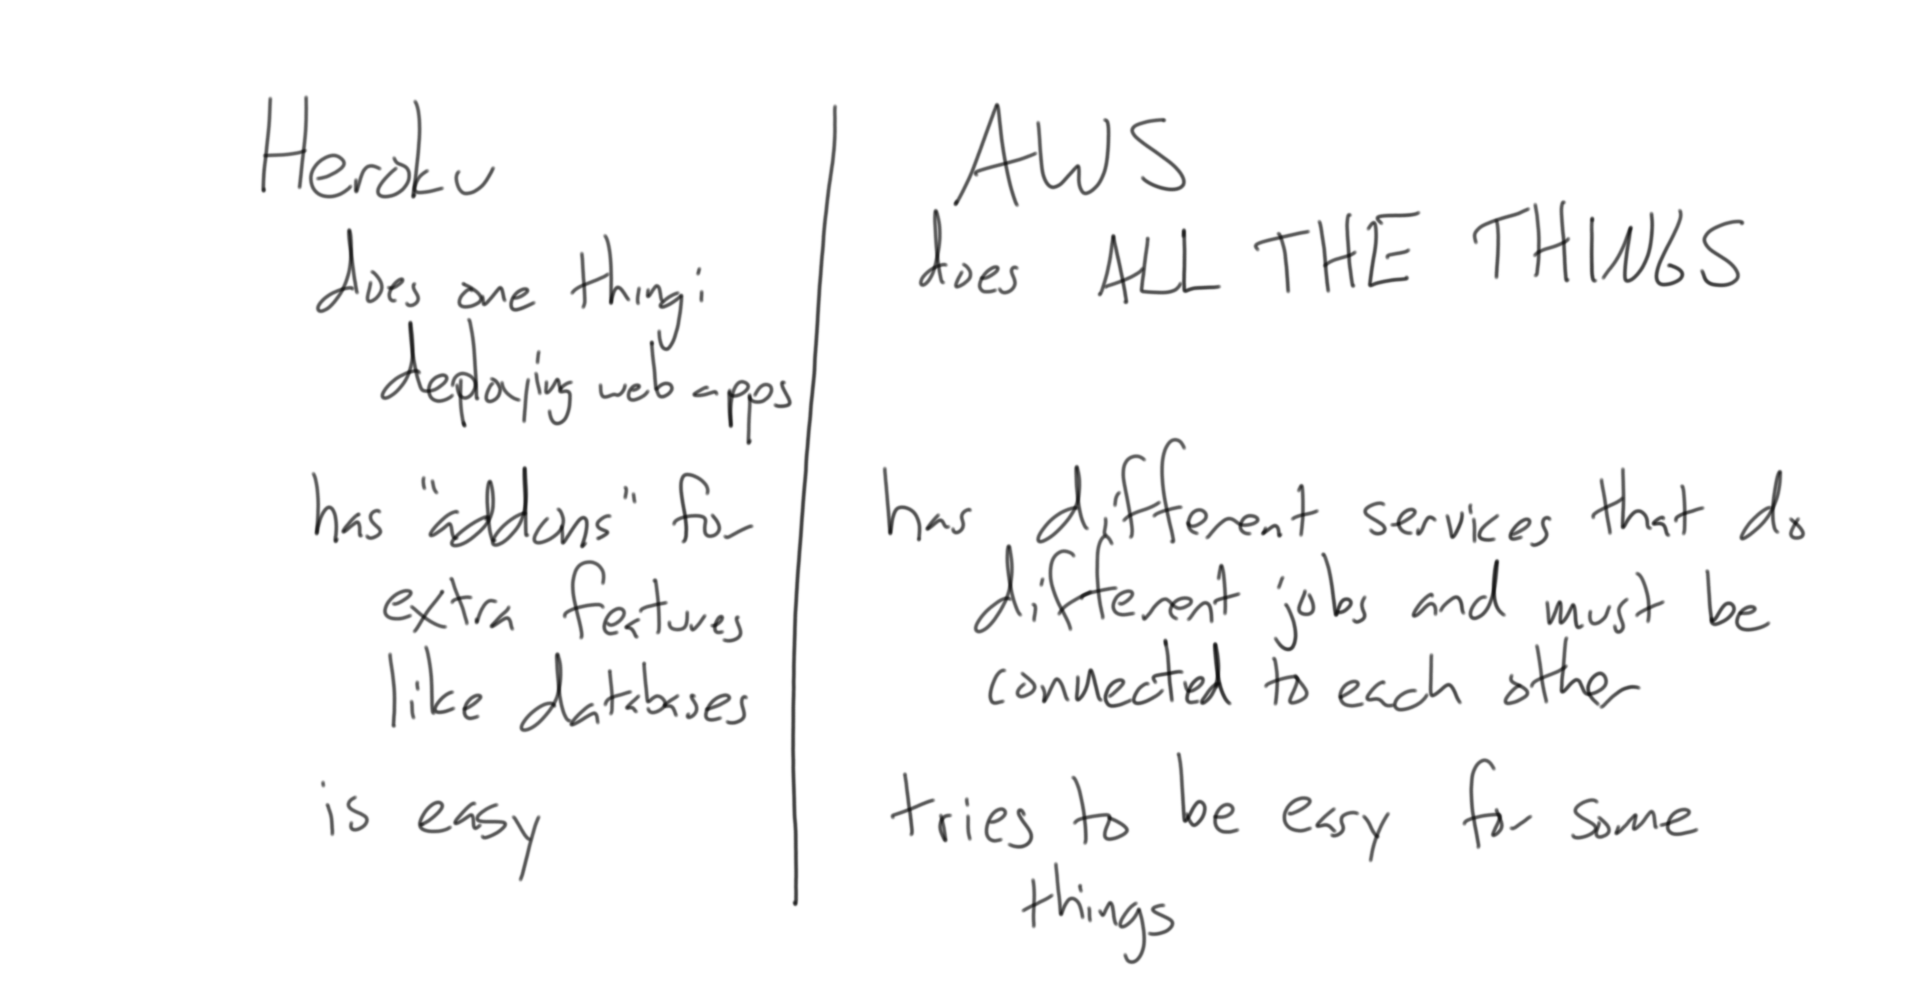 Heroku
does one thing:
deploying web apps
has "addons" for
extra features
like databases
is easy
AWS
does ALL THE THINGS
has different services that do
different jobs and must be
connected to each other
tries to be easy for some
things